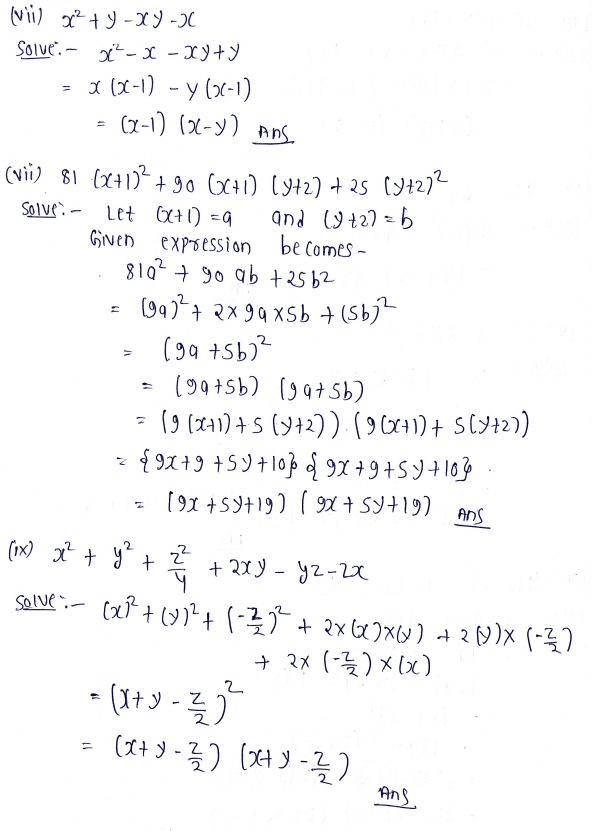 (vii) x² + y - xy - x
Solve:- x² - x - xy + y
= x (x-1) - y (x-1)
= (x-1) (x-y) Ans
(vii) 81 (x+1)² + 90 (x+1) (y+2) + 25 (y+2)²
Solve:- Let (x+1) = a and (y+2) = b
Given expression becomes-
81a² + 90 ab + 25b2
= (9a)² + 2 x 9a x 5b + (5b)²
= (9a + 5b)²
= (9a+5b) (9a+5b)
= (9 (x+1) + 5 (y+2)) . (9 (x+1) + 5(y+2))
= {9x+9 + 5y+10} {9x+9+5y+10} .
= (9x +5y+19) (9x + 5y+19) Ans
(ix) x² + y² + z²/4 + 2xy - yz - zx
Solve:- (x)² + (y)² + (-z/2)² + 2x (x) x (y) + 2 (y) x (-z/2)
+ 2x (-z/2) x (x)
= (x + y - z/2)²
= (x+y - z/2) (x+y - z/2)
Ans